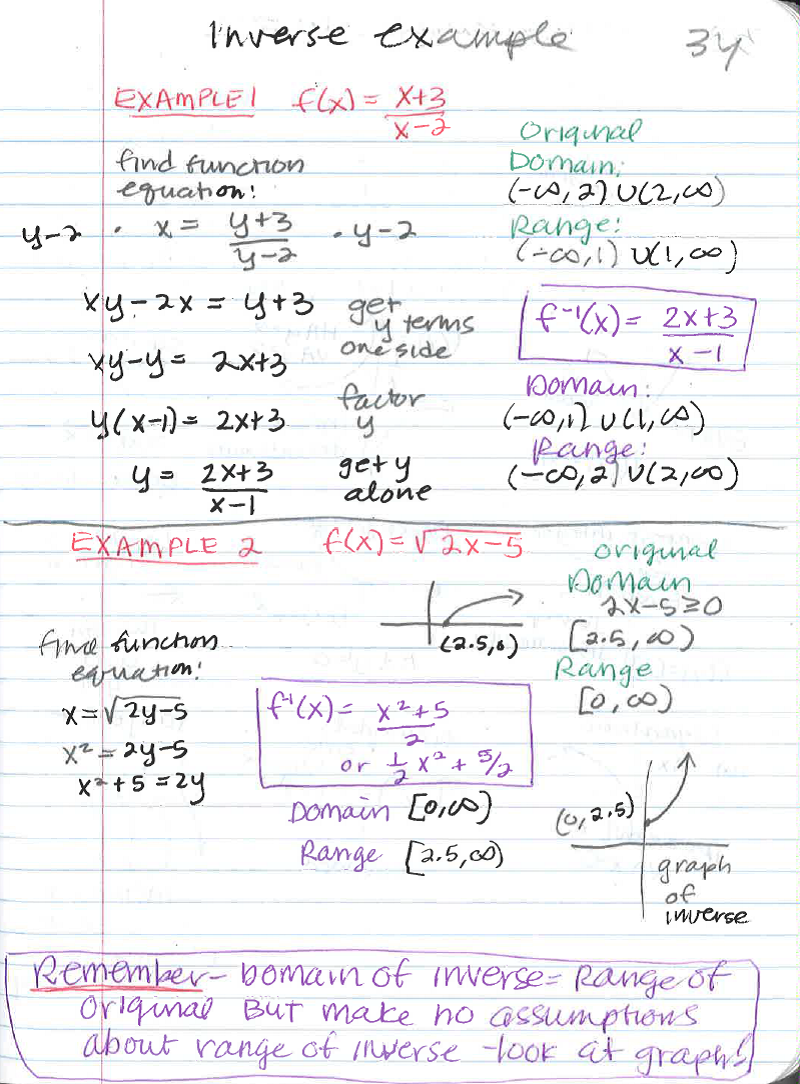 Inverse example
34
EXAMPLE 1 f(x) = x+3 / x-2
find function
equation!
y-2 · x = y+3 / y-2 · y-2
xy-2x = y+3
get
y terms
one side
xy-y = 2x+3
y(x-1) = 2x+3
factor
y
y = 2x+3 / x-1
get y
alone
Original
Domain:
(-∞, 2) ∪ (2, ∞)
Range:
(-∞, 1) ∪ (1, ∞)
f⁻¹(x) = 2x+3 / x-1
Domain:
(-∞, 1) ∪ (1, ∞)
Range:
(-∞, 2) ∪ (2, ∞)
EXAMPLE 2 f(x) = √2x-5
(2.5,0)
original
Domain
2x-5≥0
[2.5, ∞)
Range
[0, ∞)
find function
equation!
x = √2y-5
x² = 2y-5
x²+5 = 2y
f⁻¹(x) = x²+5 / 2
or 1/2 x² + 5/2
Domain [0, ∞)
Range [2.5, ∞)
(0, 2.5)
graph
of
inverse
Remember - Domain of inverse = Range of
original But make no assumptions
about range of inverse - look at graph!